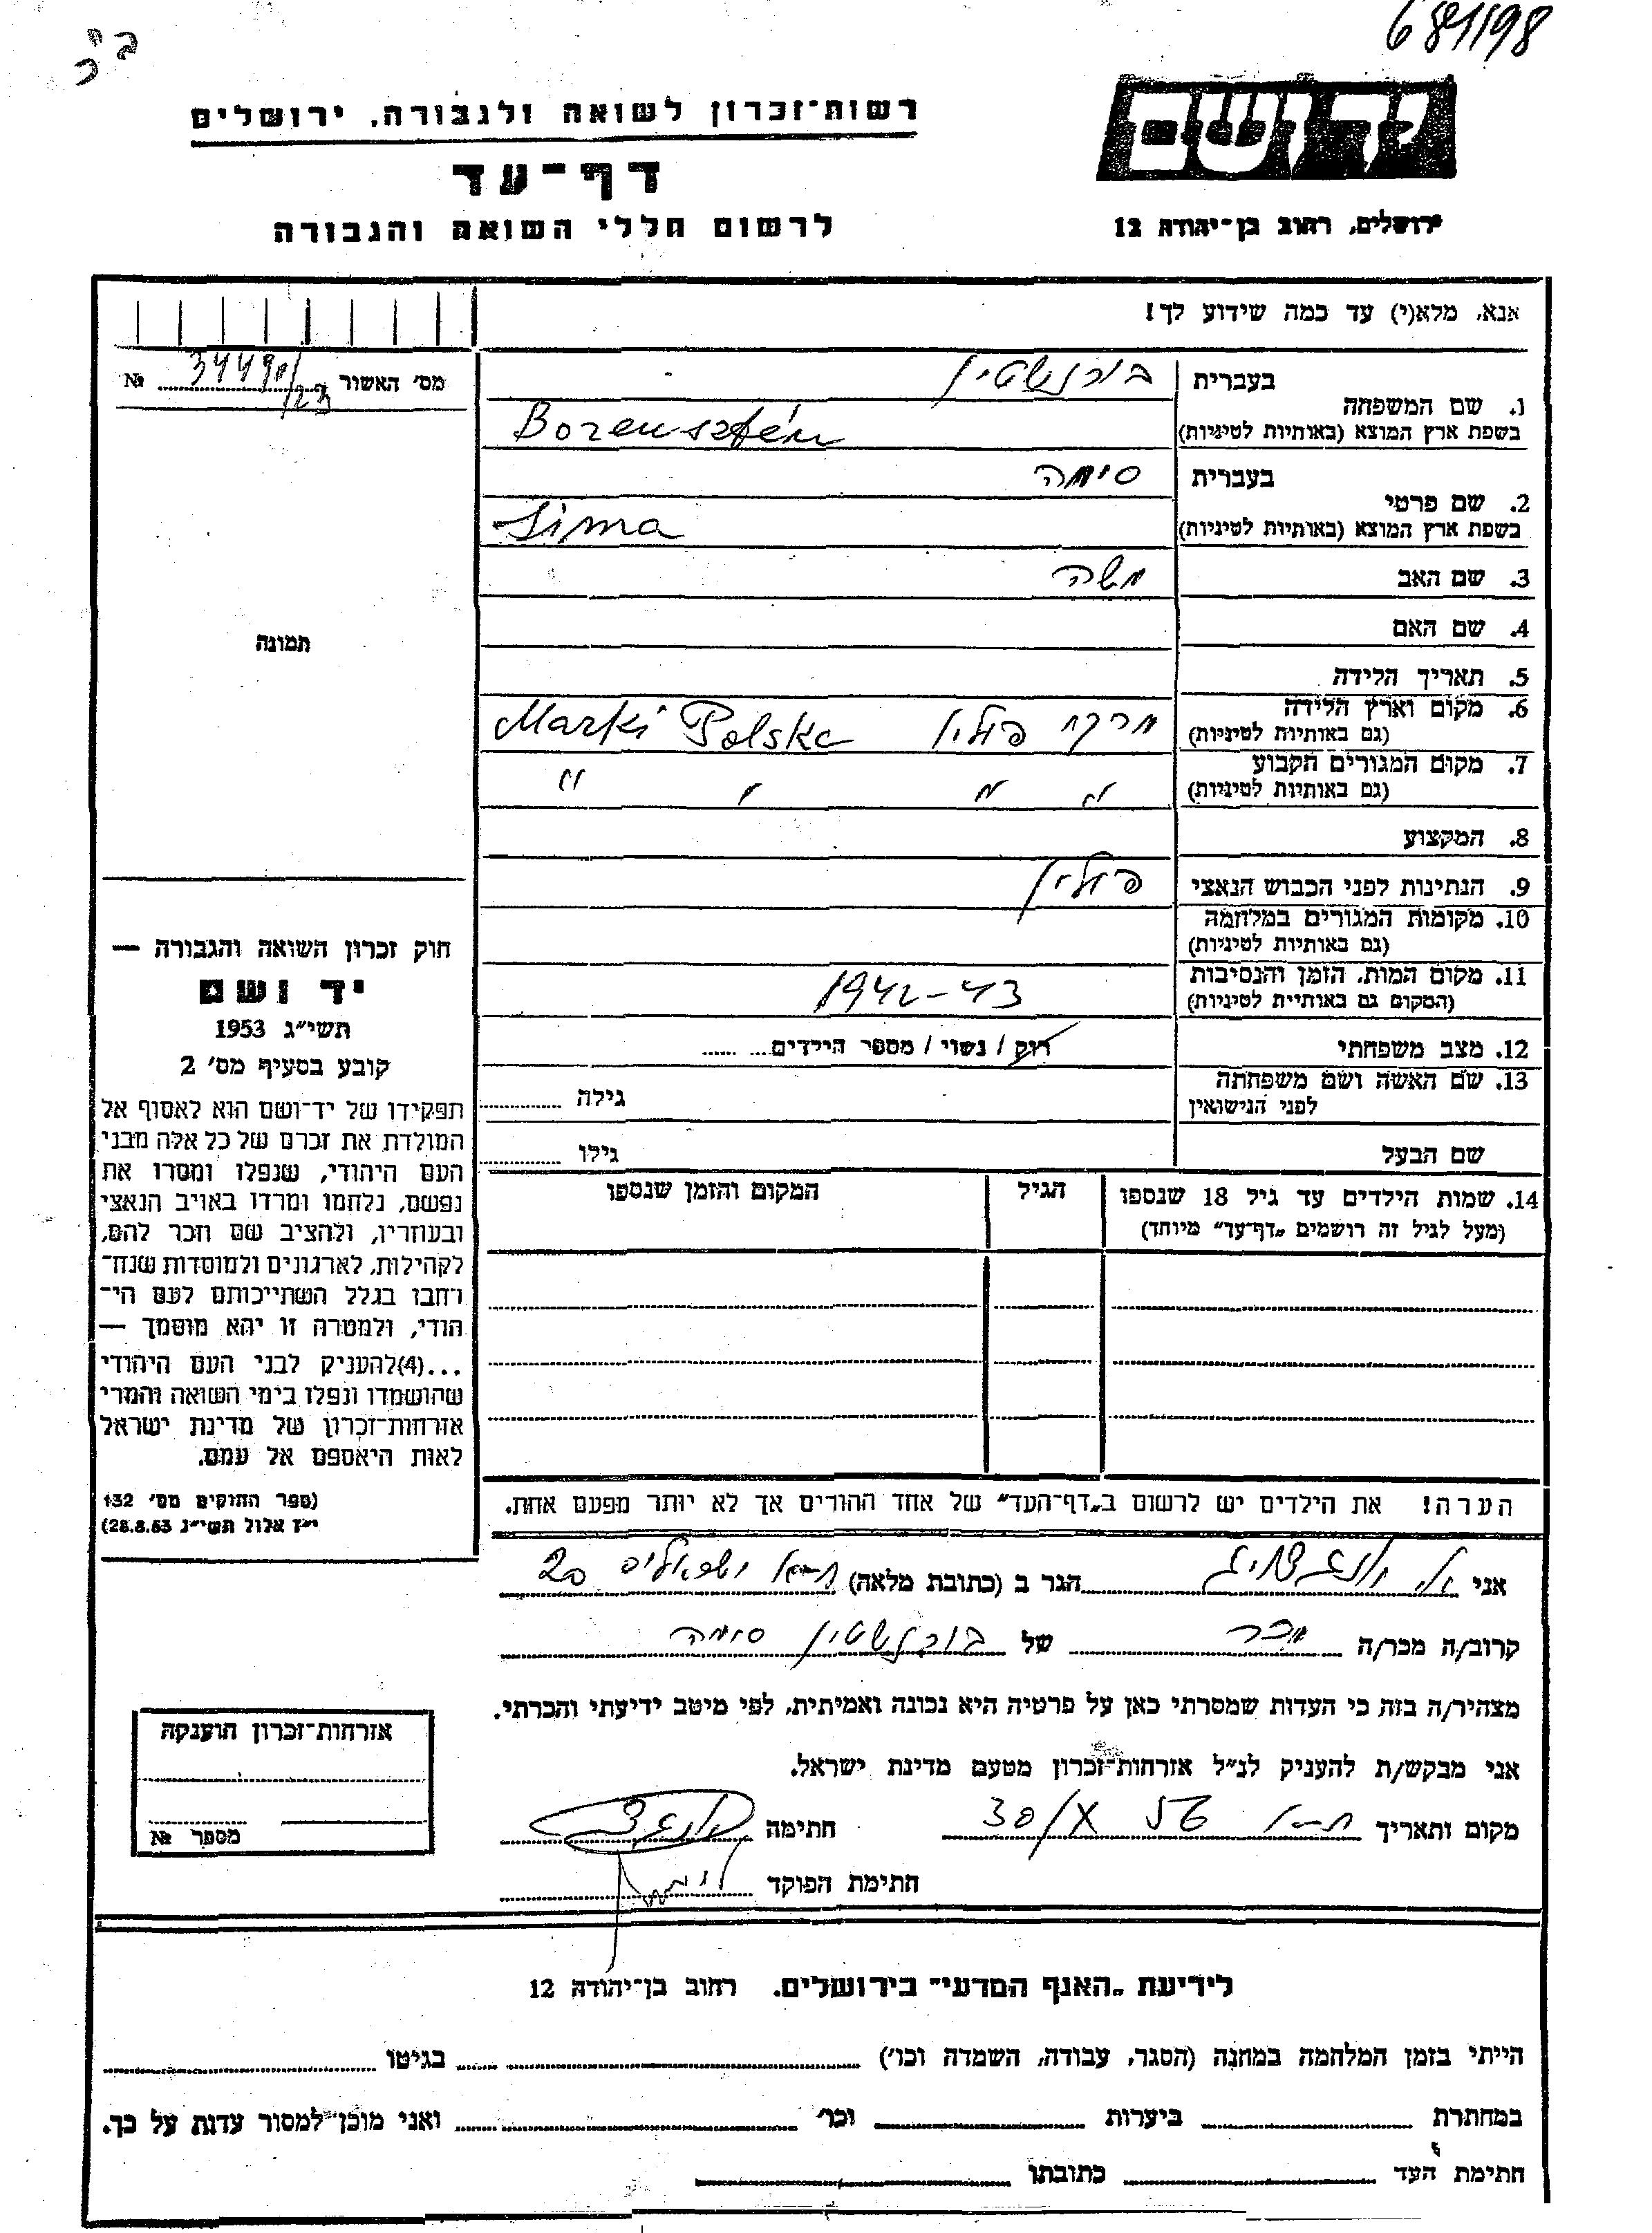 681198
ב"כ
יד ושם
רשות־זכרון לשואה ולגבורה, ירושלים
דף־עד
לרשום חללי השואה והגבורה
ירושלים, רחוב בן־יהודה 12
אנא, מלא(י) עד כמה שידוע לך!
מס' האשור №
1. שם המשפחה
בעברית בורנשטיין
בשפת ארץ המוצא (באותיות לטיניות) Borensztein
2. שם פרטי
בעברית סימה
בשפת ארץ המוצא (באותיות לטיניות) Sima
3. שם האב משה
4. שם האם
תמונה
5. תאריך הלידה
6. מקום וארץ הלידה מרקי פולין Marki Polska
(גם באותיות לטיניות)
7. מקום המגורים הקבוע " " " "
(גם באותיות לטיניות)
8. המקצוע
9. הנתינות לפני הכבוש הנאצי פולין
10. מקומות המגורים במלחמה
(גם באותיות לטיניות)
11. מקום המות, הזמן והנסיבות 1942-43
(המקום גם באותיות לטיניות)
12. מצב משפחתי רווק / נשוי / מספר הילדים
13. שם האשה ושם משפחתה
לפני הנישואין גילה
שם הבעל גילו
14. שמות הילדים עד גיל 18 שנספו הגיל המקום והזמן שנספו
(מעל לגיל זה רושמים „דף־עד" מיוחד)
חוק זכרון השואה והגבורה —
יד ושם
תשי"ג 1953
קובע בסעיף מס' 2
תפקידו של יד־ושם הוא לאסוף אל
המולדת את זכרם של כל אלה מבני
העם היהודי, שנפלו ומסרו את
נפשם, נלחמו ומרדו באויב הנאצי
ובעוזריו, ולהציב שם וזכר להם,
לקהילות, לארגונים ולמוסדות שנח־
רבו בגלל השתייכותם לעם הי־
הודי, ולמטרה זו יהא מוסמך —
...(4)להעניק לבני העם היהודי
שהושמדו ונפלו בימי השואה והמרי
אזרחות־זכרון של מדינת ישראל
לאות היאספם אל עמם.
(ספר החוקים מס' 132
י"ז אלול תשי"ג 28.8.53)
הערה! את הילדים יש לרשום ב„דף־העד" של אחד ההורים אך לא יותר מפעם אחת.
אני הגר ב (כתובת מלאה)
קרוב/ה מכר/ה מכר של בורנשטיין סימה
מצהיר/ה בזה כי העדות שמסרתי כאן על פרטיה היא נכונה ואמיתית, לפי מיטב ידיעתי והכרתי.
אני מבקש/ת להעניק לנ"ל אזרחות־זכרון מטעם מדינת ישראל.
מקום ותאריך 30/X חתימה
חתימת הפוקד
אזרחות־זכרון הוענקה
מספר №
לידיעת „האגף המדעי" בירושלים, רחוב בן־יהודה 12
הייתי בזמן המלחמה במחנה (הסגר, עבודה, השמדה וכו') בגיטו
במחתרת ביערות וכו' ואני מוכן למסור עדות על כך.
חתימת העד כתובתו